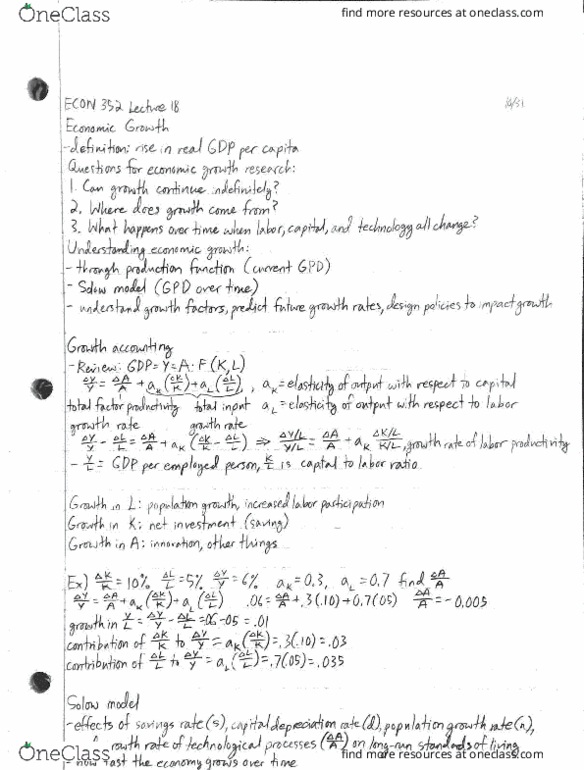 OneClass
find more resources at oneclass.com
ECON 352 Lecture 18
10/31
Economic Growth
-definition: rise in real GDP per capita
Questions for economic growth research:
1. Can growth continue indefinitely?
2. Where does growth come from?
3. What happens over time when labor, capital, and technology all change?
Understanding economic growth:
- through production function (current GPD)
- Solow model (GPD over time)
- understand growth factors, predict future growth rates, design policies to impact growth
Growth accounting
- Review: GDP = Y = A · F(K,L)
ΔY/Y = ΔA/A + a_K(ΔK/K) + a_L(ΔL/L), a_K = elasticity of output with respect to capital
total factor productivity total input a_L = elasticity of output with respect to labor
growth rate growth rate
ΔY/Y - ΔL/L = ΔA/A + a_K(ΔK/K - ΔL/L) ⇒ ΔY/L / Y/L = ΔA/A + a_K ΔK/L / K/L, growth rate of labor productivity
- Y/L = GDP per employed person, K/L is capital to labor ratio
Growth in L: population growth, increased labor participation
Growth in K: net investment (saving)
Growth in A: innovation, other things
Ex) ΔK/K = 10% ΔL/L = 5% ΔY/Y = 6% a_K = 0.3, a_L = 0.7 find ΔA/A
ΔY/Y = ΔA/A + a_K(ΔK/K) + a_L(ΔL/L) .06 = ΔA/A + .3(.10) + 0.7(.05) ΔA/A = -0.005
growth in Y/L = ΔY/Y - ΔL/L = .06 - .05 = .01
contribution of ΔK/K to ΔY/Y = a_K(ΔK/K) = .3(.10) = .03
contribution of ΔL/L to ΔY/Y = a_L(ΔL/L) = .7(.05) = .035
Solow model
-effects of savings rate (s), capital depreciation rate (d), population growth rate (n),
growth rate of technological processes (ΔA/A) on long-run standards of living
- how fast the economy grows over time
OneClass
find more resources at oneclass.com